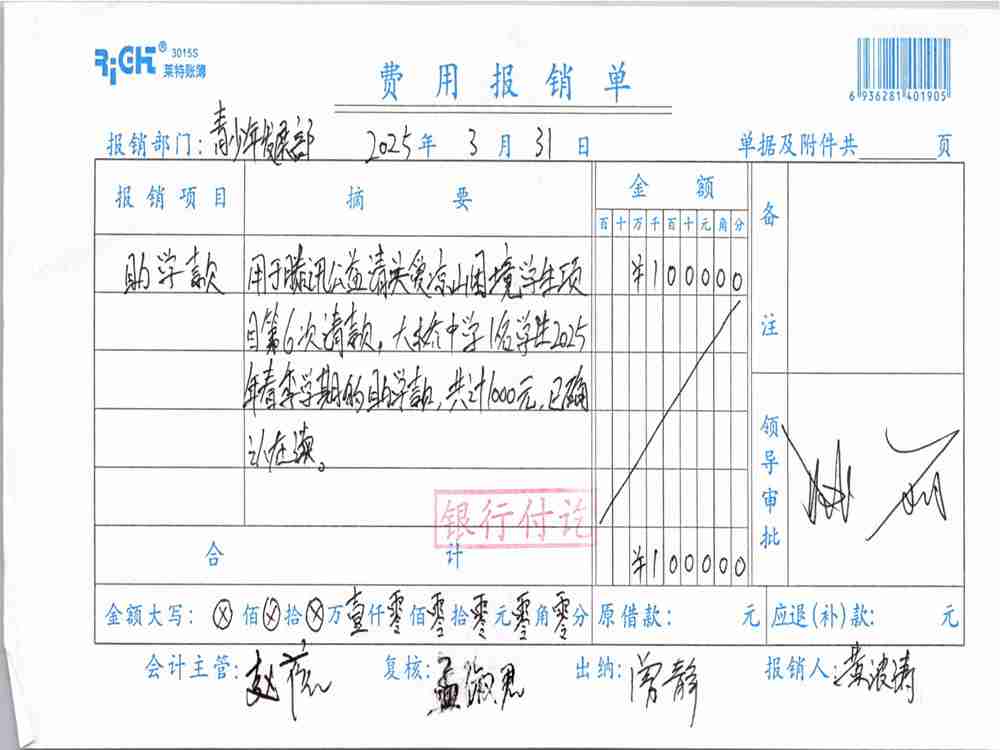 RiGHT® 3015S
莱特账簿
费用报销单
6 936281 401905
报销部门:青少年发展部 2025年3月31日 单据及附件共 页
报销项目 摘要 金额 备注
百十万千百十元角分
助学款 用于腾讯公益请关爱凉山困境学生项 ¥100000
目第6次请款,大桥中学1名学生2025
年春季学期的助学款,共计1000元,已确
认在读。
领导审批
银行付讫
合计 ¥100000
金额大写:ⓧ佰ⓧ拾ⓧ万壹仟零佰零拾零元零角零分 原借款: 元 应退(补)款: 元
会计主管:赵 复核:孟 出纳:曾静 报销人:黄浪涛